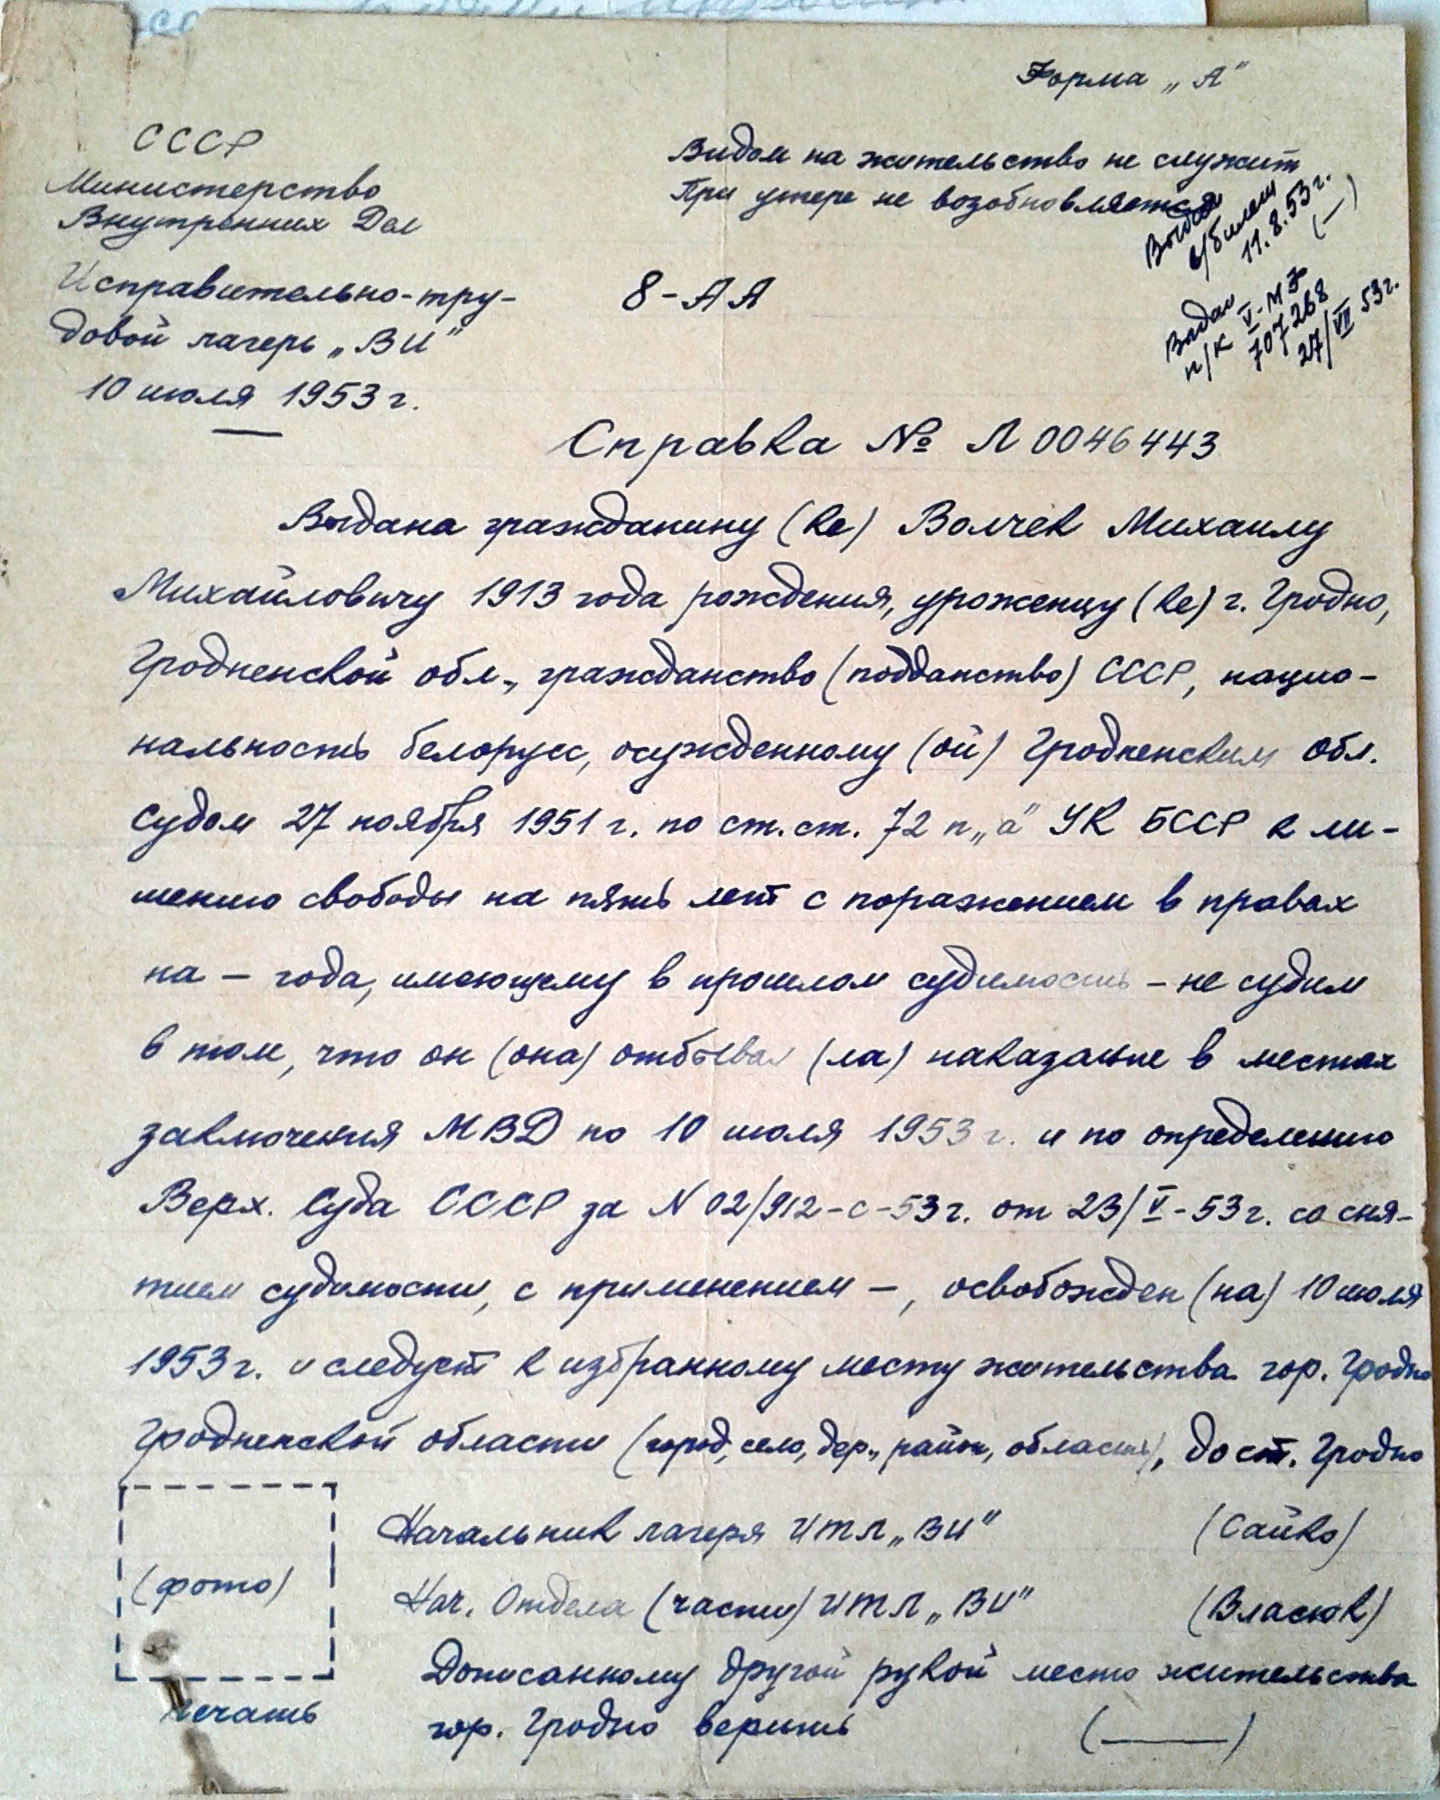 Форма „А"
СССР
Министерство
Внутренних Дел
Исправительно-тру-
довой лагерь „ВИ"
10 июля 1953 г.
Видом на жительство не служит
При утере не возобновляется
8-АА
Выдан
в/билет
11.8.53г.
(—)
Выдан
п/к V-МЖ
707268
27/VII 53г.
Справка № Л 0046443
Выдана гражданину (ке) Волчек Михаилу
Михайловичу 1913 года рождения, уроженцу (ке) г. Гродно,
Гродненской обл., гражданство (подданство) СССР, нацио-
нальность белорусс, осужденному (ой) Гродненским обл.
судом 27 ноября 1951 г. по ст.ст. 72 п„а" УК БССР к ли-
шению свободы на пять лет с поражением в правах
на – года, имеющему в прошлом судимость – не судим
в том, что он (она) отбывал (ла) наказание в местах
заключения МВД по 10 июля 1953 г. и по определению
Верх. Суда СССР за N 02/912-с-53г. от 23/V-53г. со сня-
тием судимости, с применением –, освобожден (на) 10 июля
1953г. и следует к избранному месту жительства гор. Гродно
Гродненской области (город, село, дер., район, область), до ст. Гродно
Начальник лагеря ИТЛ „ВИ" (Сайко)
(фото)
Нач. Отдела (части) ИТЛ „ВИ" (Власюк)
Дописанному другой рукой место жительства
печать
гор. Гродно верить (———)